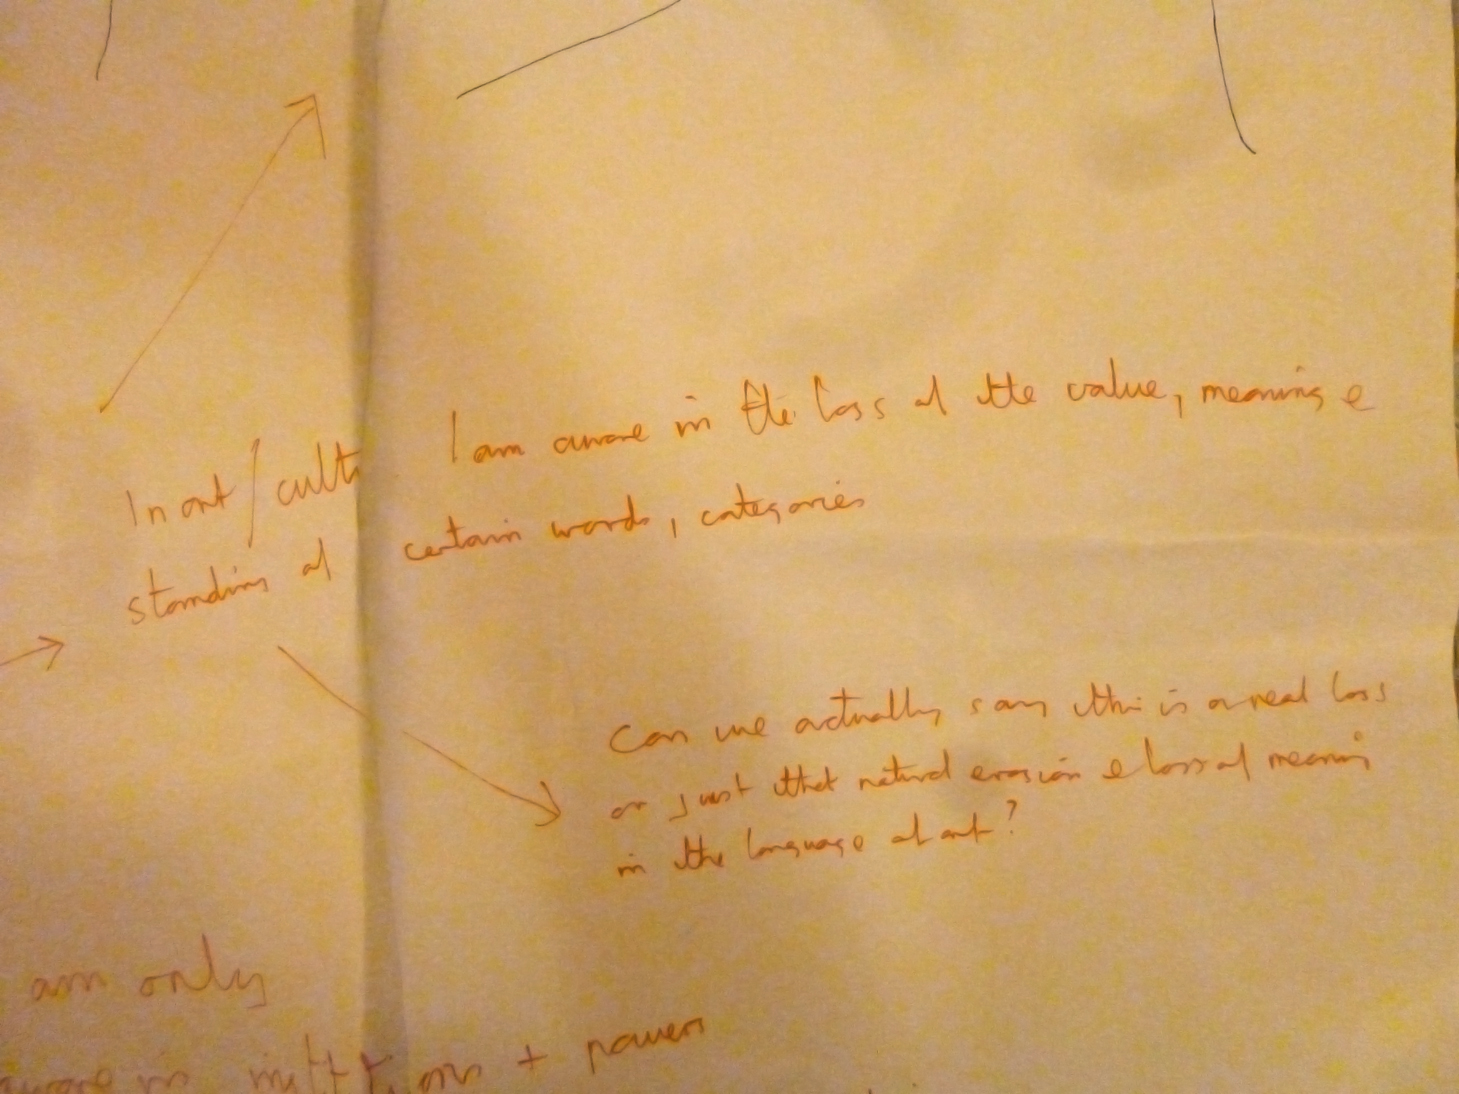 In art / cult I am aware in the loss of the value, meaning e
standing of certain words, categories
Can we actually say this is a real loss
or just that natural erosion e loss of meaning
in the language of art?
am only
aware in + power